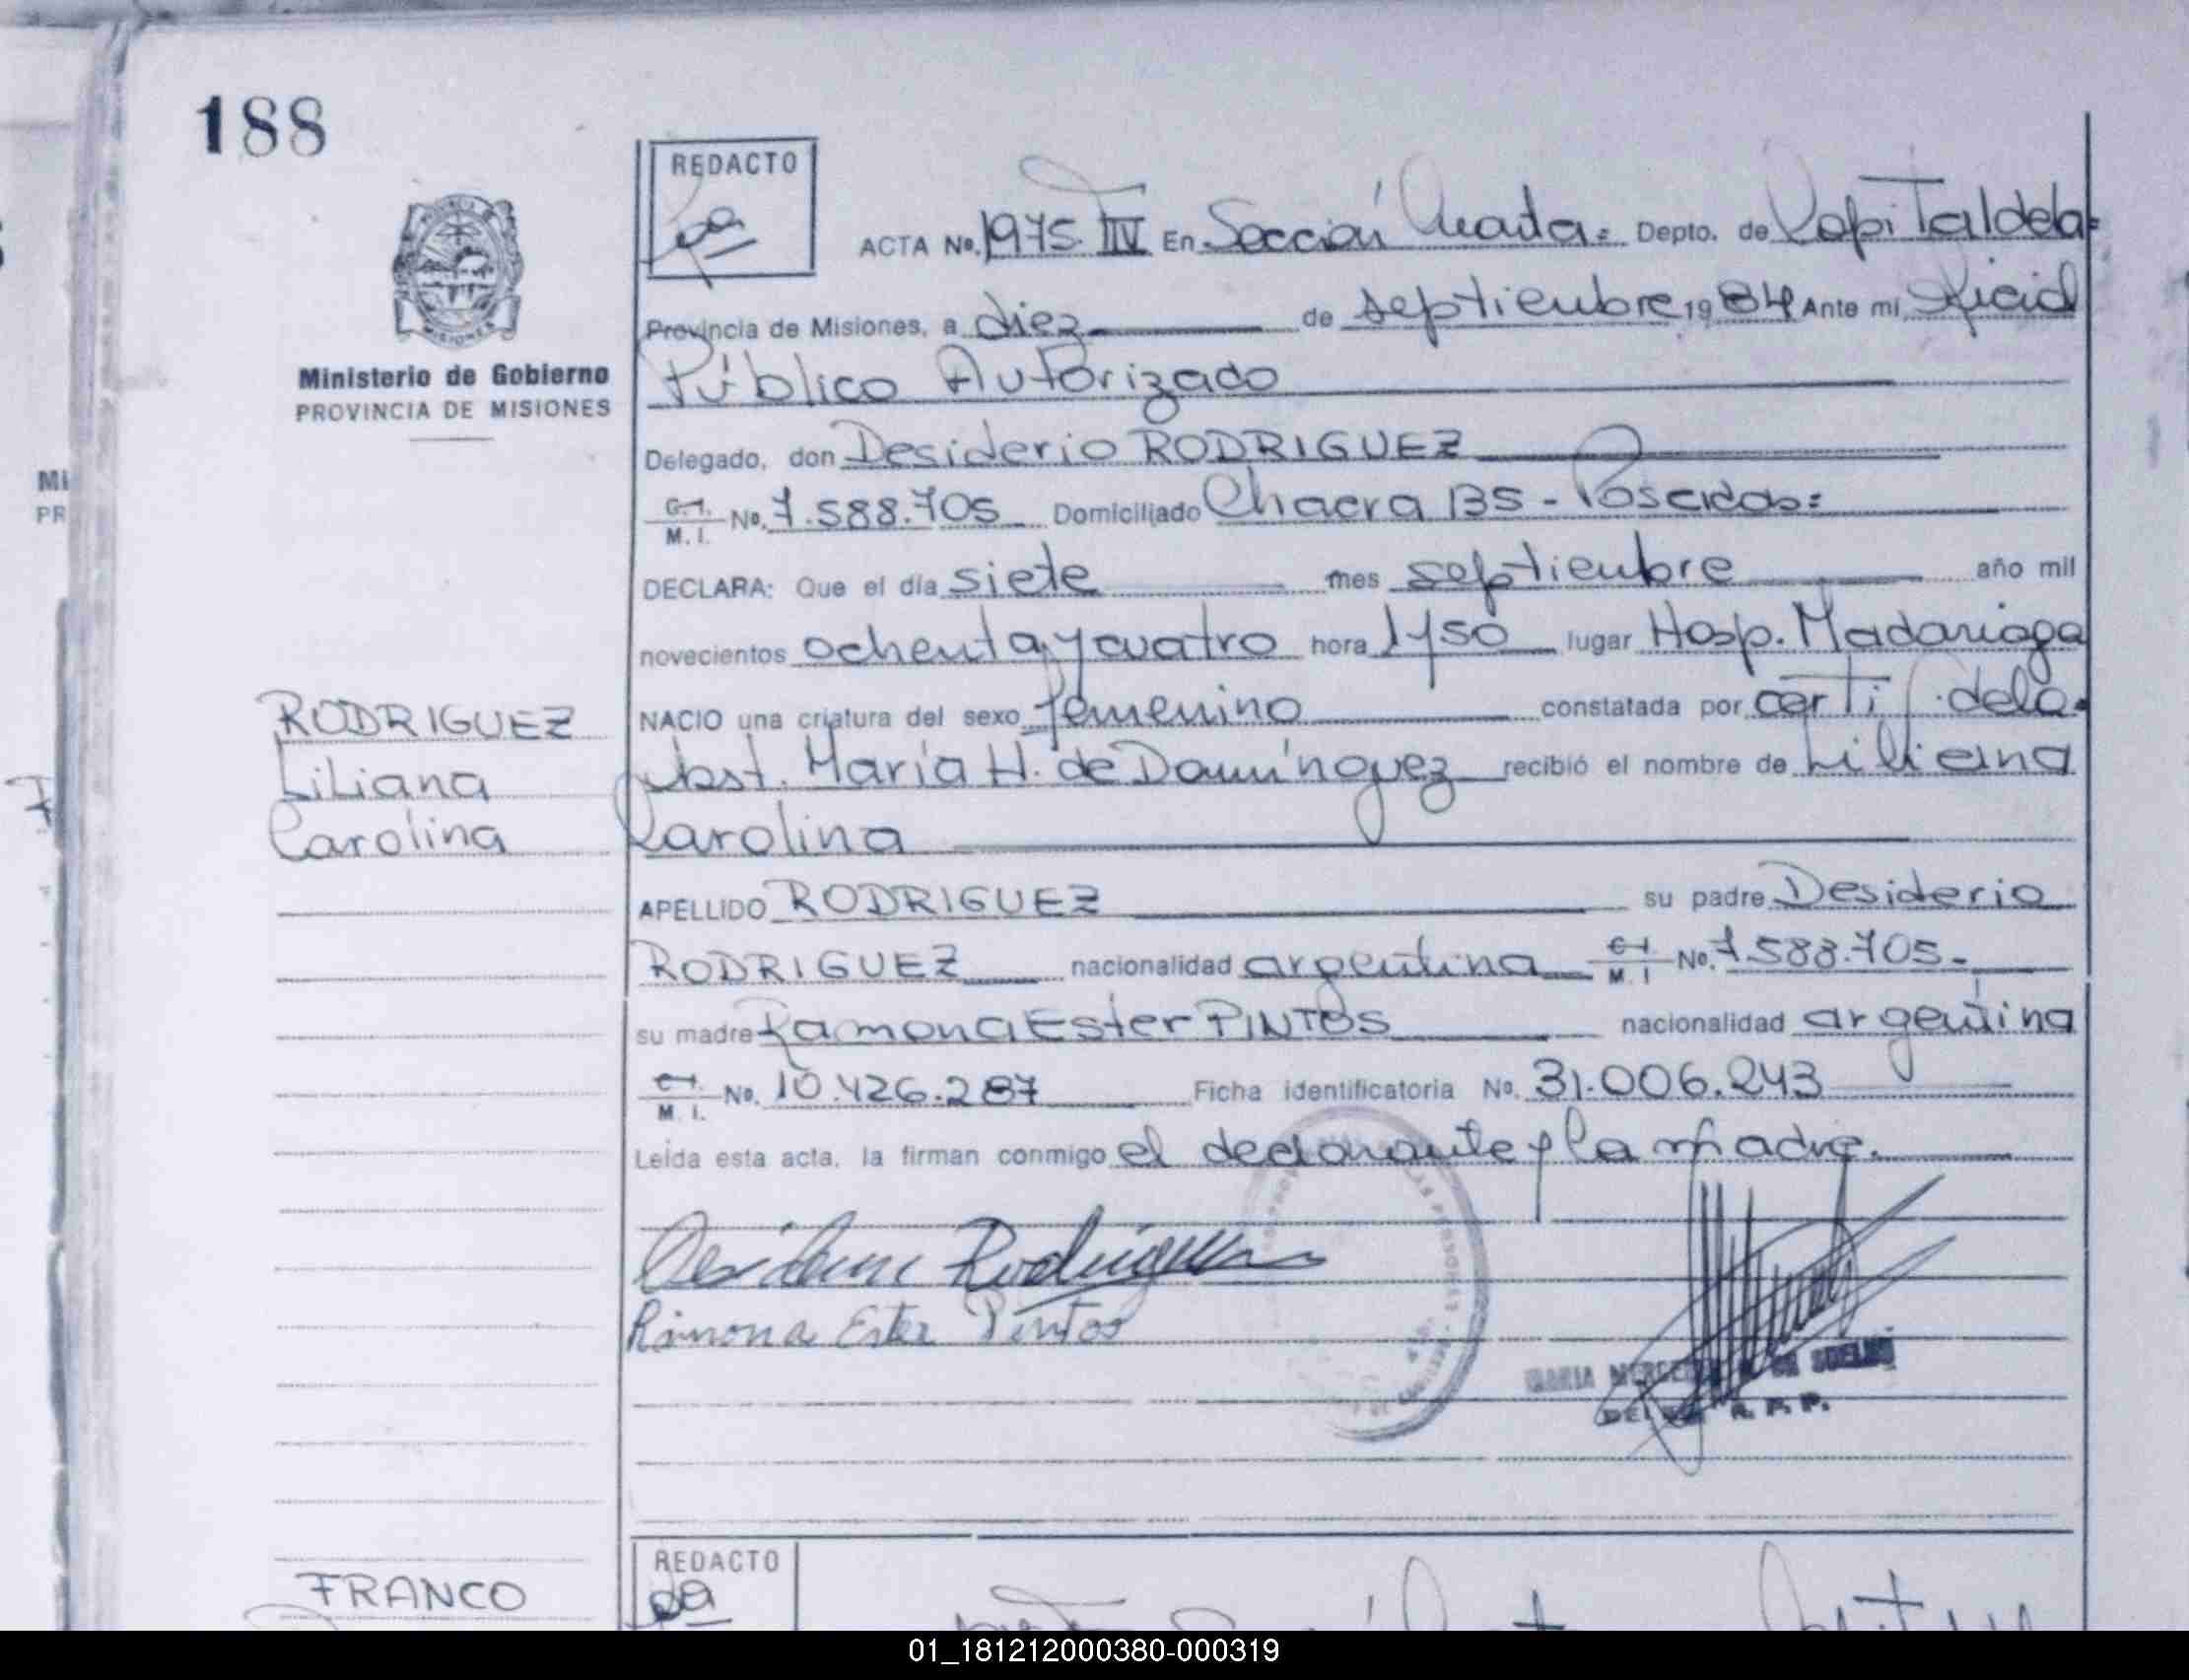 188
REDACTO
ACTA Nº. 1975 TºIV En Sección Cuarta= Depto. de Capital de la=
Provincia de Misiones, a diez de septiembre 1984 Ante mi, Oficial
Público Autorizado
Ministerio de Gobierno
PROVINCIA DE MISIONES
Delegado, don Desiderio RODRIGUEZ
C.I. M. I. Nº. 7.588.705 Domiciliado Chacra 135 - Posadas=
DECLARA: Que el día siete mes septiembre año mil
novecientos ochenta y cuatro hora 1750 lugar Hosp. Madariaga
NACIO una criatura del sexo femenino constatada por certif. de la=
obst. María H. de Domínguez recibió el nombre de Liliana
Carolina
RODRIGUEZ
Liliana
Carolina
APELLIDO RODRIGUEZ su padre Desiderio
RODRIGUEZ nacionalidad argentina C.I. M. I Nº. 7.588.705.-
su madre Ramona Ester PINTOS nacionalidad argentina
C.I. M. I. Nº. 10.426.287 Ficha identificatoria Nº. 31.006.243
Leída esta acta, la firman conmigo el declarante y la madre.
Desiderio Rodriguez
Ramona Ester Pintos
MARIA DE
R. P. P.
FRANCO
REDACTO
MI
PR
01_181212000380-000319